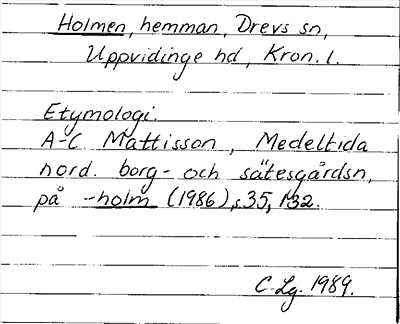 Holmen, hemman, Drevs sn,
Uppvidinge hd, Kron. l.
Etymologi.
A-C Mattisson, Medeltida
nord. borg- och sätesgårdsn,
på -holm (1986), s.35, 132.
C. Lg. 1989.